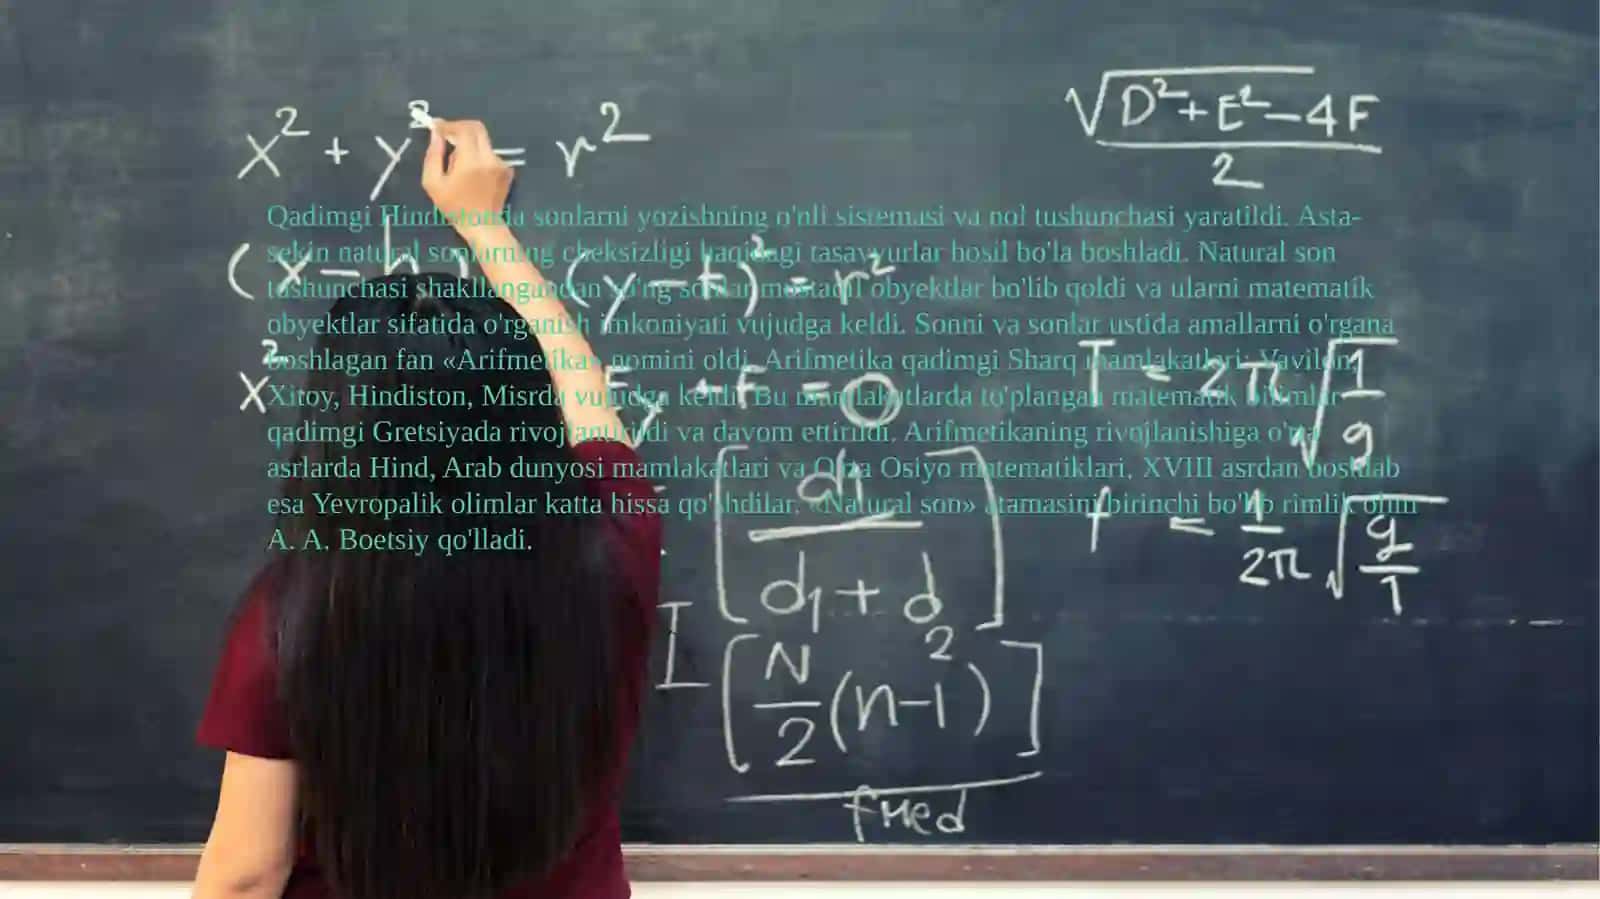 x² + y² = r²
√D²+E²-4F
2
Qadimgi Hindistonda sonlarni yozishning o'nli sistemasi va nol tushunchasi yaratildi. Asta-
sekin natural sonlarning cheksizligi haqidagi tasavvurlar hosil bo'la boshladi. Natural son
tushunchasi shakllangandan so'ng sonlar mustaqil obyektlar bo'lib qoldi va ularni matematik
obyektlar sifatida o'rganish imkoniyati vujudga keldi. Sonni va sonlar ustida amallarni o'rgana
boshlagan fan «Arifmetika» nomini oldi. Arifmetika qadimgi Sharq mamlakatlari: Vavilon,
Xitoy, Hindiston, Misrda vujudga keldi. Bu mamlakatlarda to'plangan matematik bilimlar
qadimgi Gretsiyada rivojlantirildi va davom ettirildi. Arifmetikaning rivojlanishiga o'rta
asrlarda Hind, Arab dunyosi mamlakatlari va O'rta Osiyo matematiklari, XVIII asrdan boshlab
esa Yevropalik olimlar katta hissa qo'shdilar. «Natural son» atamasini birinchi bo'lib rimlik olim
A. A. Boetsiy qo'lladi.
(x-h) (y-k)² = r²
x² y + F = 0
T = 2π √1/g
f = 1/2π √g/1
[d1
d1 + d2]
I
[N/2 (n-1)]
fned